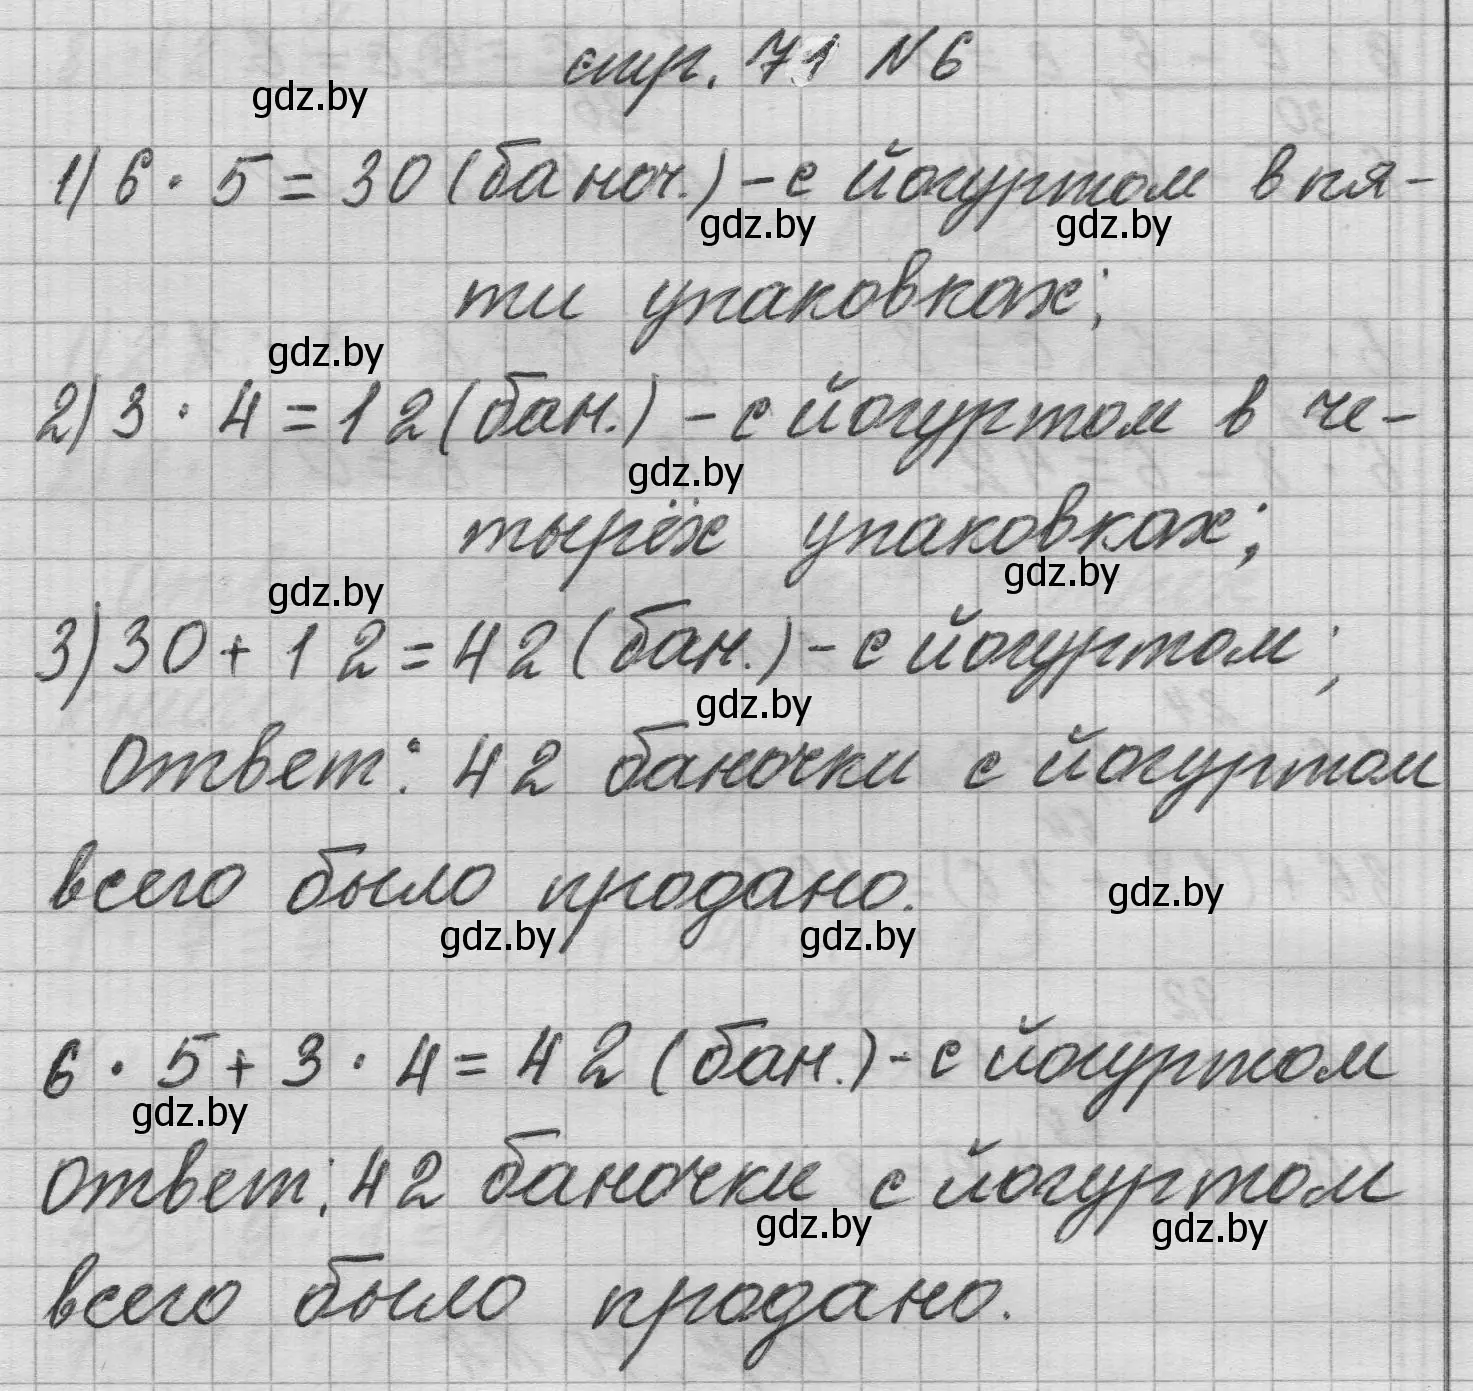 стр. 71 №6
gdz.by
1) 6 · 5 = 30 (баноч.) – с йогуртом в пя-
gdz.by gdz.by
ти упаковках;
gdz.by
2) 3 · 4 = 12 (бан.) – с йогуртом в че-
gdz.by
тырёх упаковках;
gdz.by gdz.by
3) 30 + 12 = 42 (бан.) – с йогуртом;
gdz.by
Ответ: 42 баночки с йогуртом
всего было продано.
gdz.by
gdz.by gdz.by
6 · 5 + 3 · 4 = 42 (бан.) – с йогуртом
gdz.by
Ответ: 42 баночки с йогуртом
gdz.by gdz.by
всего было продано.